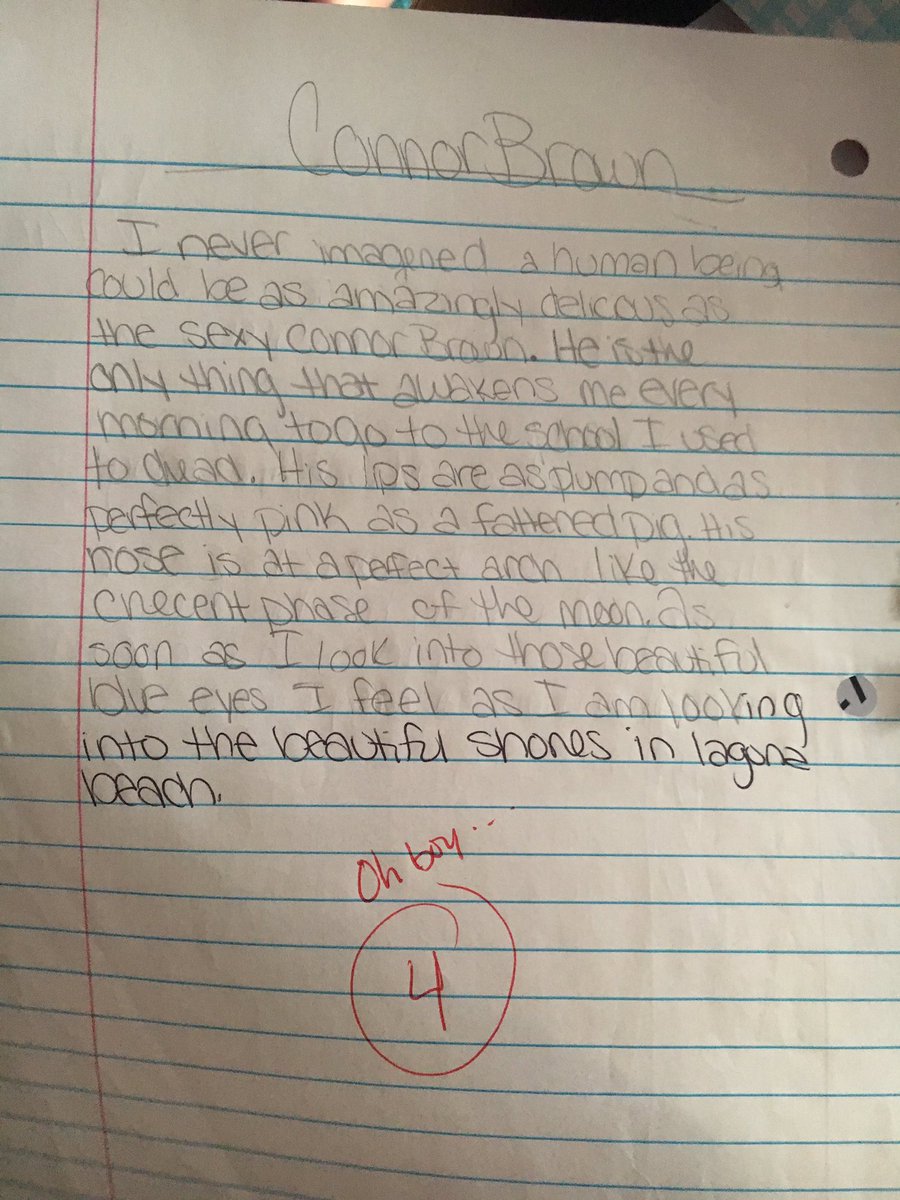 Connor Brown
I never imagened a human being
could be as amazingly delicous as
the sexy Connor Brown. He is the
only thing that awakens me every
morning to go to the school I used
to dread. His lips are as plump and as
perfectly pink as a fattened pig. His
nose is at a perfect arch like the
crecent phase of the moon. As
soon as I look into those beautiful
blue eyes I feel as I am looking
into the beautiful shores in laguna
beach.
Oh boy...
4